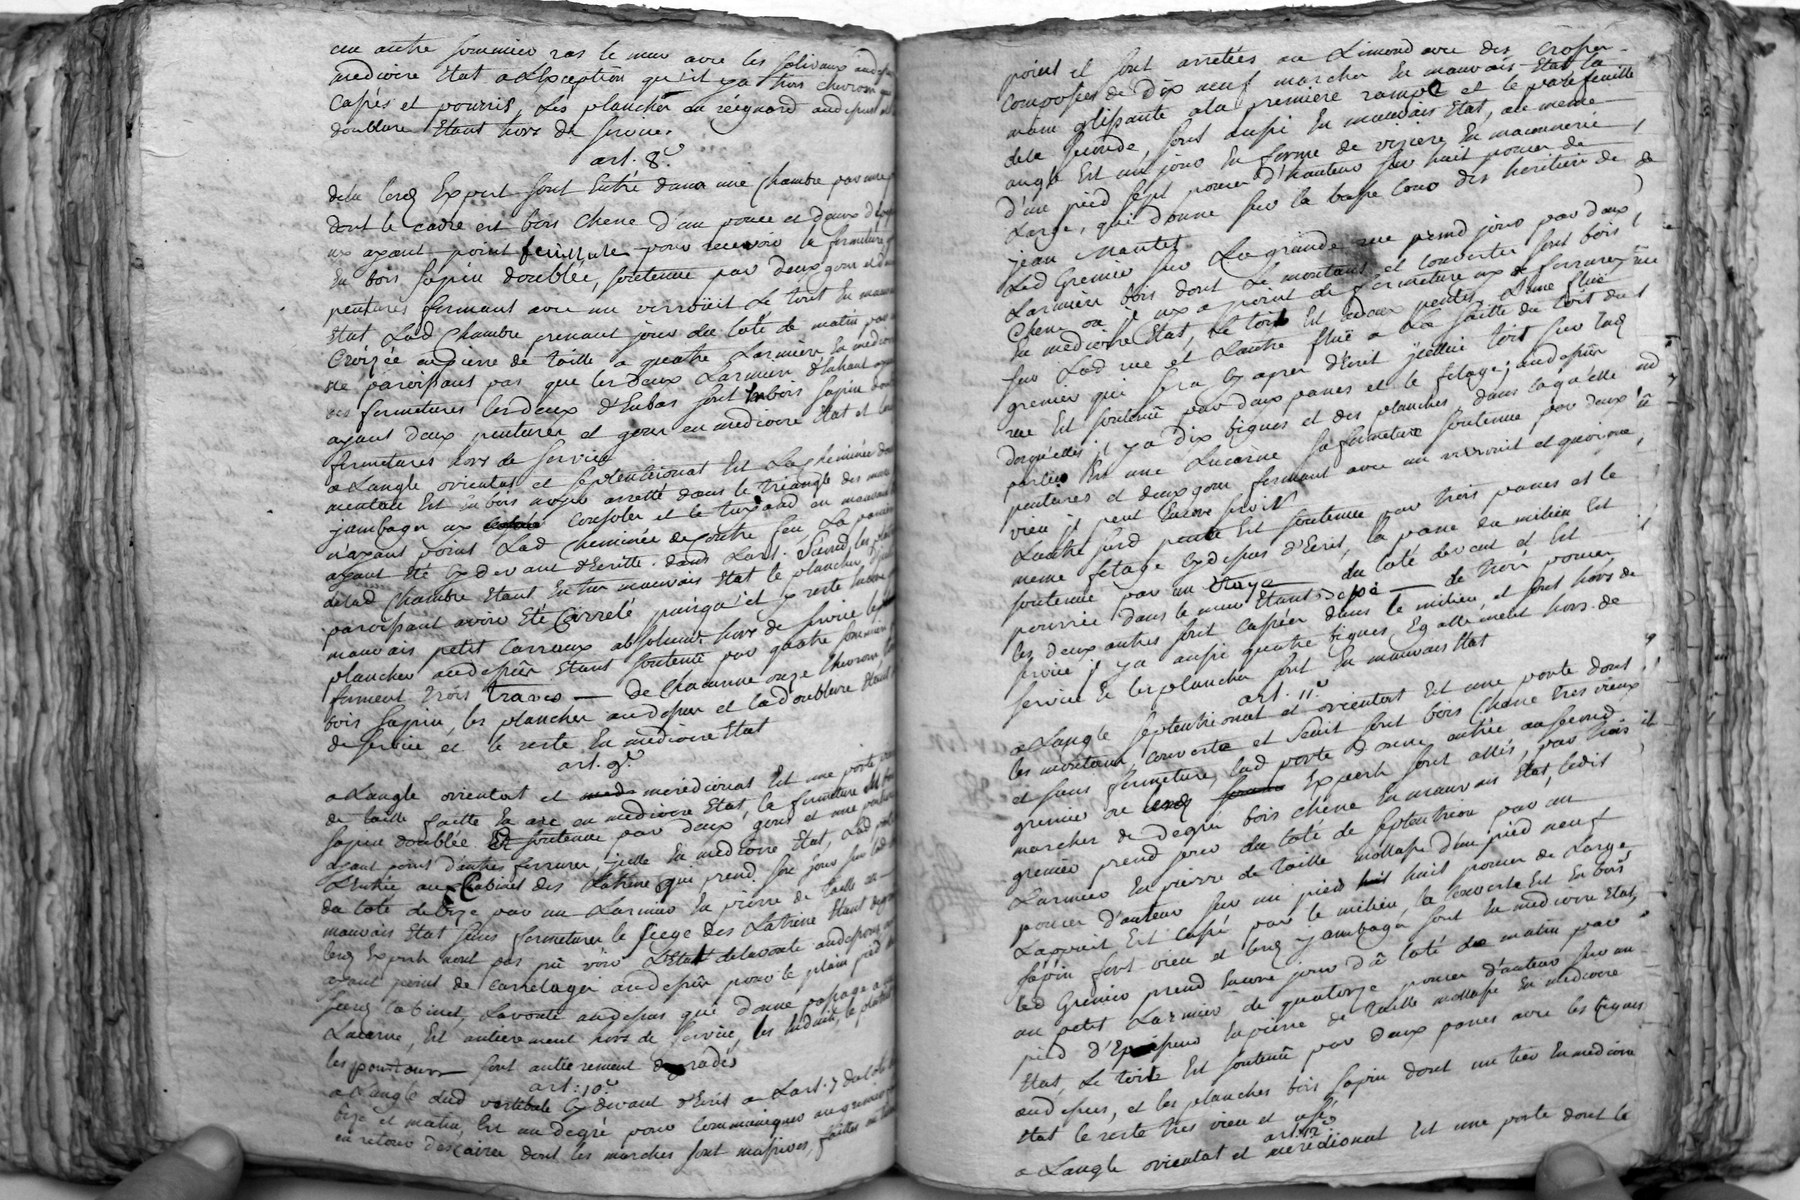 un autre sommier ras le mur avec les solivaux audessus
mediocre Etat a L'exception qu'il y a trois chevrons
capés et pourris, Les plancher du reignard audessus
doublure Etant hors de Service.
art. 8e
dela lesd Expert sont Entré dans une Chambre par une
dont le cadre est bois chene d'un pouce et deux
ux ayant point feuillure pour recevoir la fermeture
En bois Sapin doublée, soutenue par deux gons et deux
pentures fermant avec un verroüit Le tout En mauvais
Etat Lad Chambre prenant jour du Coté de matin par
Croizée en pierre de taille a quatre Larmiers En mediocre
ne paroissant pas que les deux Larmiers d'Enhaut ayent
des fermetures les deux d'Enbas sont En bois sapin
ayant deux pentures et gons en mediocre Etat et les
fermetures hors de service
a Langle oriental et septentrional Est La cheminée dont
mentale Est En bois noyer arretté dans le triangle des murs
jambages aux consoles et le tuyaud en mauvais
n'ayant point Lad Cheminée de Contre feu, La
ayant Eté Cy devant d'Ecritte dans Lart. Second, les
delad Chambre Etant En tres mauvais Etat le plancher
paroissant avoir Eté Carrelé puisqu'il y reste Encore
mauvais petit Carreaux absolument hors de service le
plancher audessus Etant soutenu par quatre sommiers
forment trois traves — de Chacune onze Chevrons,
bois sapin, les plancher audessus et la doublure Etant
de service et le reste En mediocre Etat
art. 9e
a Langle oriental et meredional Est une porte
de taille faitte En arc en mediocre Etat, la fermeture Est
sapin doublée Et soutenue par deux gons et une
ayant point d'autre ferrures, icelle En mediocre Etat, Lad
L'entrée au Cabinet des Latrines qui prend son jour sur
du coté de bize par un Larmier En pierre de taille en
mauvais Etat sans fermetures le siege des Latrine Etant
lesd Experts nont pas pû voir L'Etat de la voute audessous
ayant point de carrelages audessus pour le plain pied
sur cabinet, La voute audessus qui donne passage a
Lucarne, Est entierement hors de service, les enduits, le
les pourtours — sont entierement degradés
art: 10e
a Langle dud vestibule Cy devant d'Ecrit a Lart. 7 du coté
bize et matin Est un degré pour communiquer au grenier
en retour descalier dont les marches sont massives, faittes en
point et sont arretées au Limond avec des
composées de Dix neuf marches En mauvais Etat la
main glissante a la premiere rampe et le garde feuille
dela seconde, sont aussi En mauvais Etat, au meme
angle Est un jour En forme de visiere En maconnerie
d'un pied sept pouces d'hauteur sur huit pouces de
Large, qui donne sur la basse Cour des heritiers de
jean Nantet
Led Grenier sur La grande rue prend jour par deux
Larmiers bois dont Le montant et couvertes sont bois
Chene ou il n'y a point de fermetures ny de ferrures
En mediocre Etat, Le toit Est a deux pentes, L'une flüe
sur Lad rue et Lautre flüe a La faitte du toit dud
grenier qui sera Cy apres d'Ecrit icelluy toit sur lad
rue Est soutenu par deux panes et le fetage; audessus
desquelles il y a dix bigues et des planches, dans laquelle
partie Est une Lucarne sa fermeture soutenue par deux
pentures et deux gons fermant avec un verroüit et quoique
vieu il peut Encore servir
Lautre sur pente Est soutenue par trois panes et le
meme fetage Cy dessus d'Ecrit, la pane du milieu Est
soutenue par un Etaye — du coté devent et Est
pourrie dans le mur Etants — de trois pouces
les deux autres sont capées dans le milieu, et sont hors de
service il y a aussi quatre bigues Egallement hors de
service Et les plancher sont En mauvais Etat
art. 11e
a Langle septentrional et oriental Est une porte dont
les montants, couverte et seuil sont bois Chene tres vieux
et sans fermeture, lad porte donne entrée au second
grenier ou lesd Experts sont allés, par trois
marches de degrés bois chene En mauvais Etat, ledit
grenier prend jour du coté de septentrion par un
Larmier En pierre de taille mollasse d'un pied neuf
pouces d'auteur sur un pied huit pouces de Large
Lappuit Est capé par le milieu la couverte Est En bois
sapin fort vieu et lesd jambages sont En mediocre Etat,
led Grenier prend Encore jour du coté du matin par
un petit Larmier de quatorze pouces d'auteur sur un
pied d'Epesseur En pierre de taille mollasse En mediocre
Etat, Le toit Est soutenu par deux panes avec les bigues
audessus, et les planches bois sapin dont un tier En mediocre
Etat le reste tres vieu et usé
art. 12e
a Langle oriental et meredional Est une porte dont le